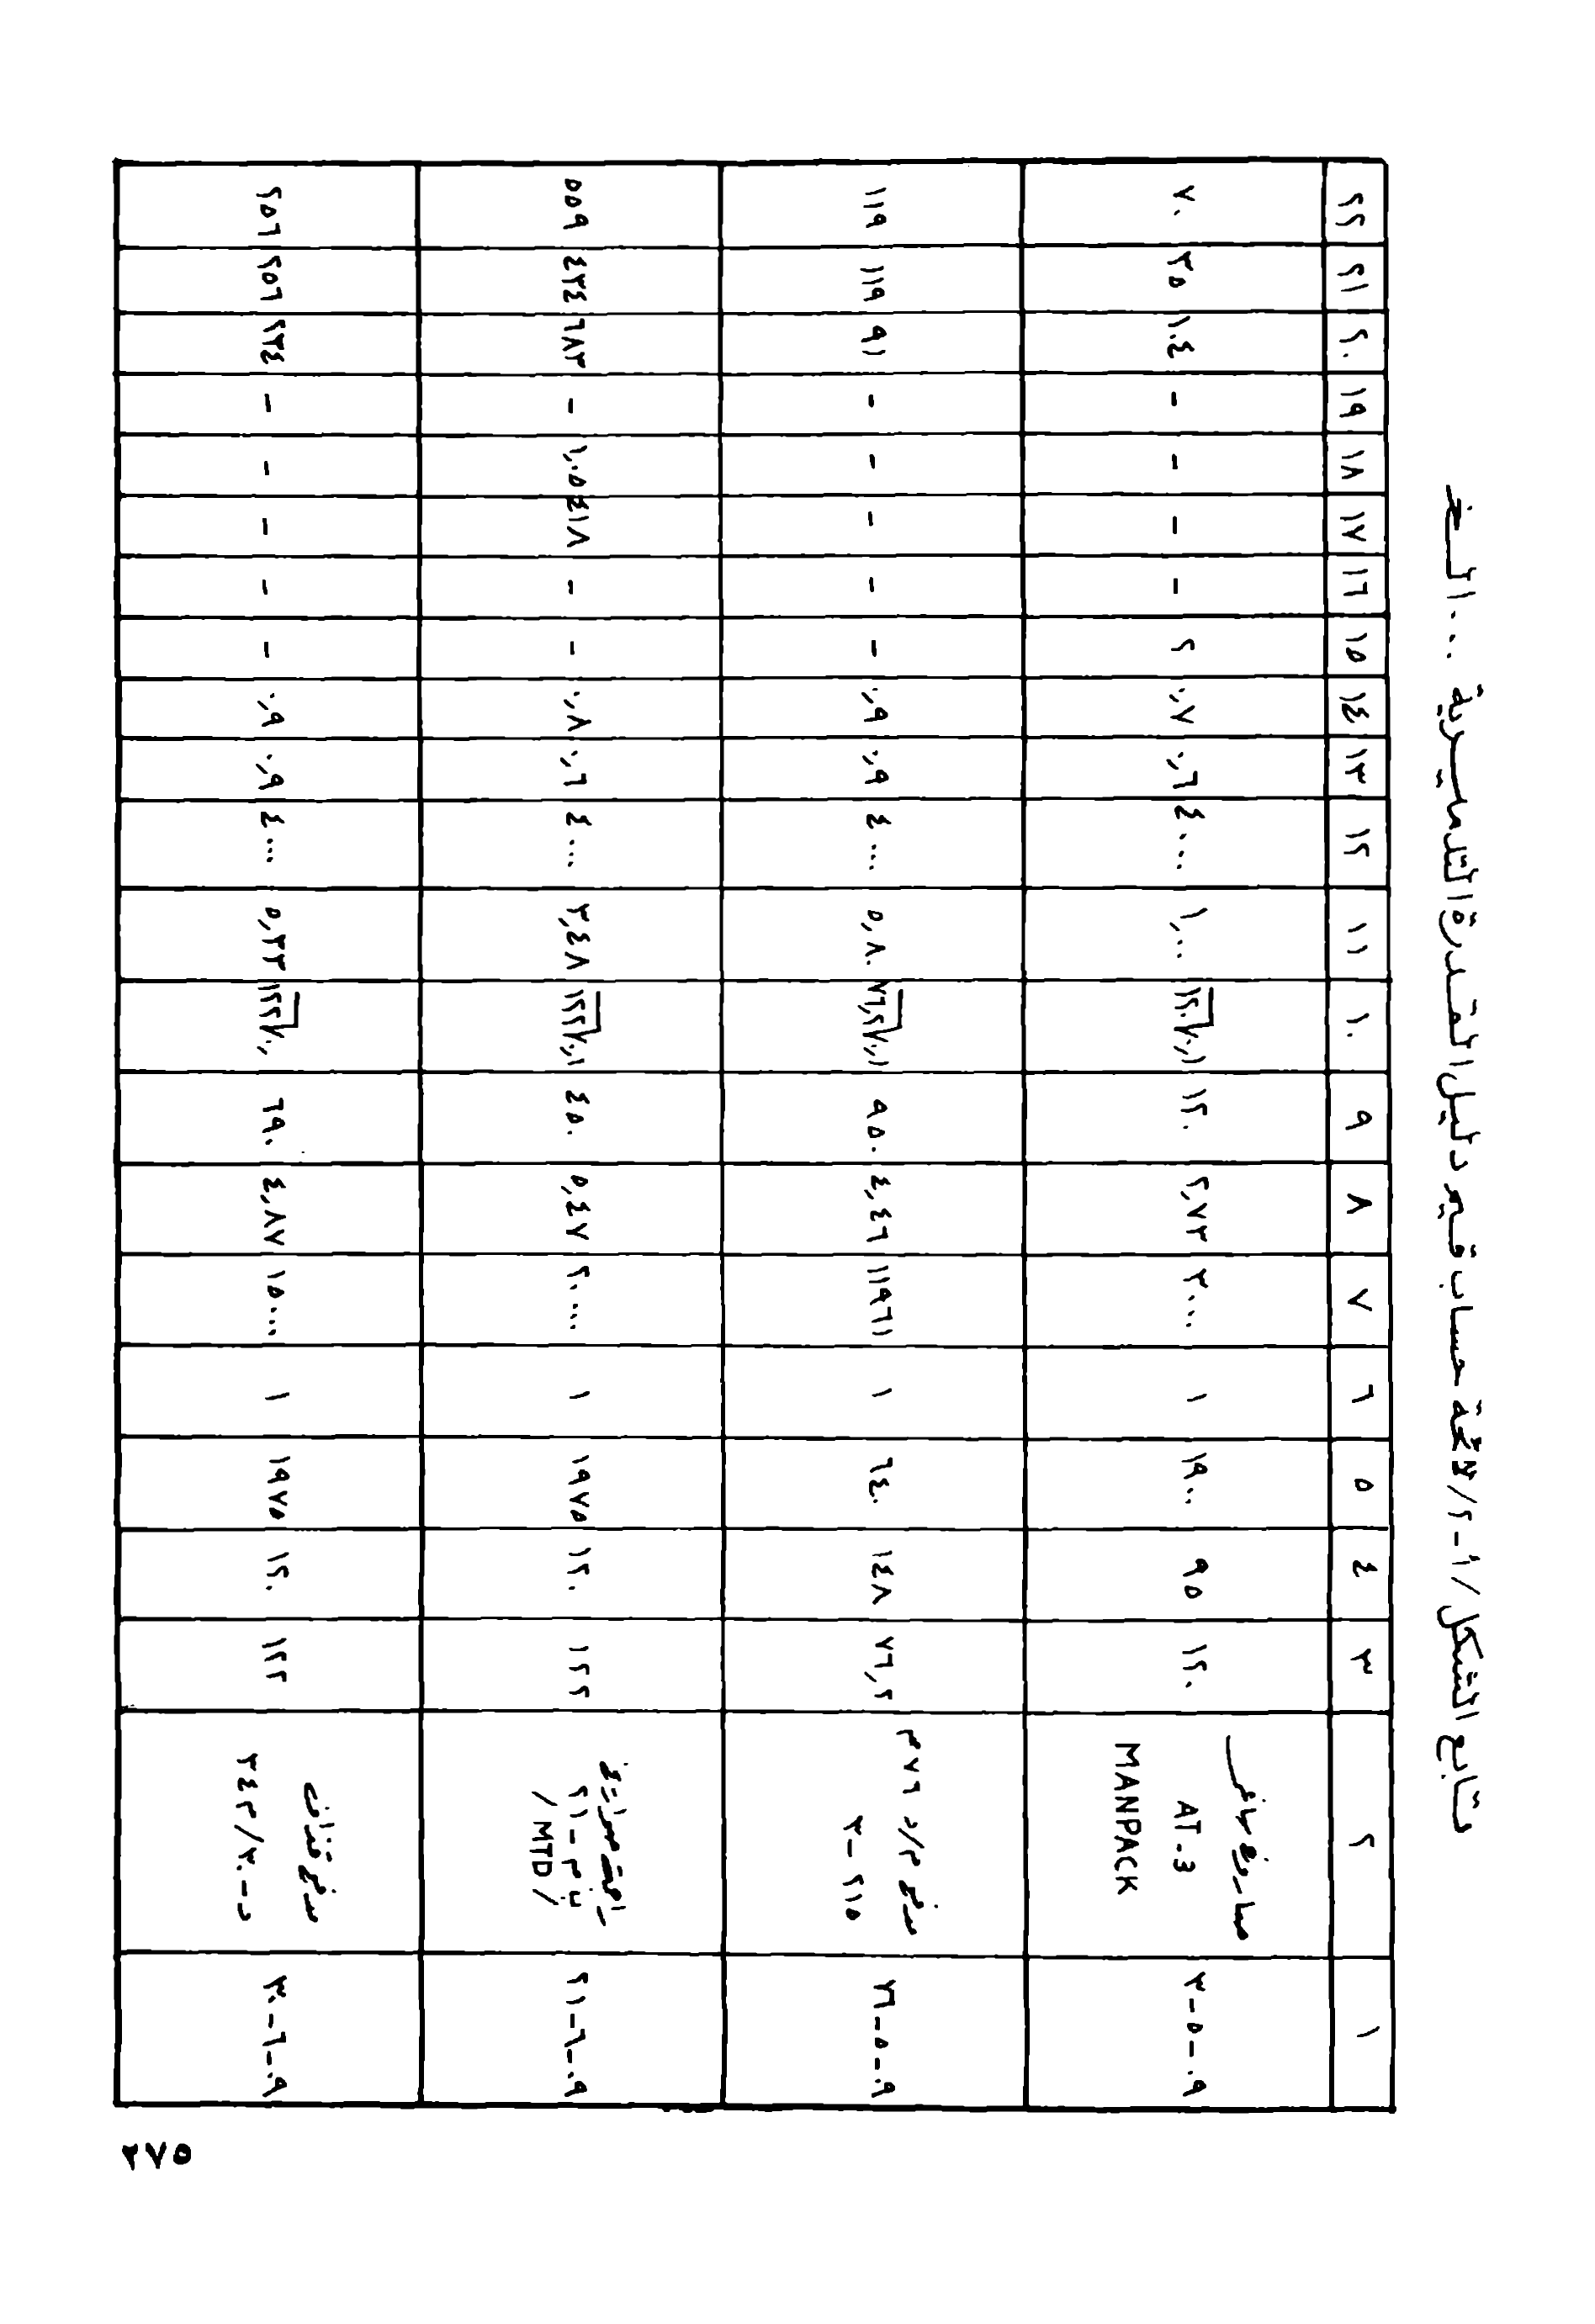 تابع الشكل / أ - ٢ / لائحة حساب قيم دليل المقدرة التدميرية ... الخ
١ ٢ ٣ ٤ ٥ ٦ ٧ ٨ ٩ ١٠ ١١ ١٢ ١٣ ١٤ ١٥ ١٦ ١٧ ١٨ ١٩ ٢٠ ٢١ ٢٢
٠٩-٥-٣
صاروخ ساغر
AT-3
MANPACK
١٢٠ ٩٥ ١٩٠٠ ١ ٣٠٠٠ ٢,٧٣ ١٢٠ ٠,٠٠٧√١٢٠ ١,٠٠ ٤٠٠٠ ٠,٦ ٠,٧ ٢ - - - - ١٠٤ ٣٥ ٧٠
٠٩-٥-٢٦
مدفع م/د ٧٦م
٣-٢١٥
٧٦,٢ ١٤٨ ٦٤٠ ١ ١١٩٦١ ٤,٤٦ ٩٥٠ ٠,٠٠٧√٧٦,٢ ٥,٨٠ ٤٠٠٠ ٠,٩ ٠,٩ - - - - - ٩١ ١١٩ ١١٩
٠٩-٦-٢١
ب م - ٢١
/ MTD /
١٢٢ ١٢٠ ١٩٧٥ ١ ٢٠٠٠٠ ٥,٤٧ ٤٥٠ ٠,٠٠٧√١٢٢ ٣,٤٨ ٤٠٠٠ ٠,٦ ٠,٨ - - ٤١٨ ١,٠٥ - ٦٨٣ ٤٣٤ ٥٥٩
٠٩-٦-٣٠
مدفع قذاف
د-٣٠/م ٣٤
١٢٢ ١٢٠ ١٩٧٥ ١ ١٥٠٠٠ ٤,٨٧ ٦٩٠ ٠,٠٠٧√١٢٢ ٥,٣٣ ٤٠٠٠ ٠,٩ ٠,٩ - - - - - ٢٣٤ ٢٥٦ ٢٥٦
٢٧٥